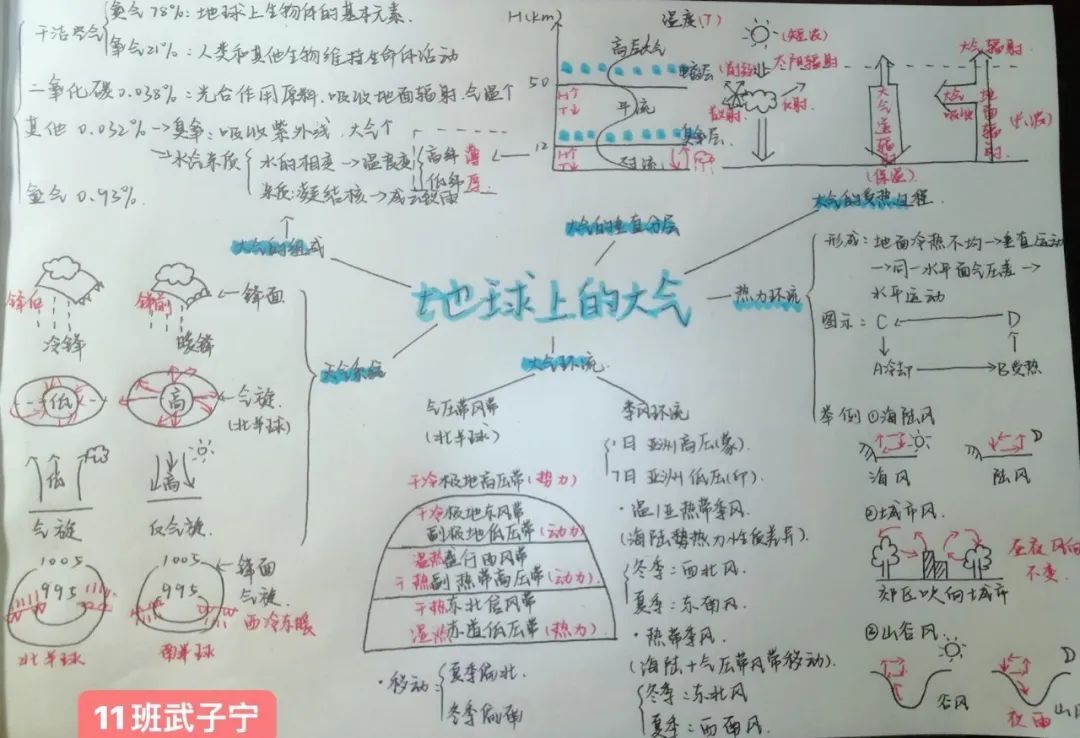 干洁空气
氮气78%:地球上生物体的基本元素.
氧气21%:人类和其他生物维持生命体活动
二氧化碳0.038%:光合作用原料.吸收地面辐射.气温个
其他 0.032%→臭氧:吸收紫外线.大气个
水的相变→温良度
高纬 薄
低纬 厚
杂质:凝结核→成云致雨
氩气 0.93%.
大气的组成
H(km)
50
12
温度(T)
高层大气
电离层
H↑
T↓
平流
臭氧层
H↑
T↓
对流
(短波)
太阳辐射
散射.
反射.
大气逆辐射
(保温)
大气辐射
大气吸收
地面辐射.
(长波)
大气的垂直分层
大气的受热过程.
地球上的大气
热力环流
形成:地面冷热不均→垂直运动
→同一水平面气压差→
水平运动
图示:C
D
A冷却
B受热
举例①海陆风
海风
陆风
②城市风.
昼夜风向
不变.
郊区吹向城市
③山谷风.
谷风
夜雨
山风
天气系统
锋后
锋前
锋面
冷锋
暖锋
低
高
气旋.
(北半球)
低
高
气旋
反气旋.
1005
995
1005
995
锋面
气旋.
西冷东暖
北半球
南半球
大气环流.
气压带风带
(北半球)
干冷极地高压带(热力)
干冷极地东风带
副极地低压带(动力)
温热盛行西风带
干热副热带高压带(动力).
干热东北信风带
湿热赤道低压带(热力)
·移动:
夏季偏北.
冬季偏南
季风环流
1日 亚洲高压(蒙).
7日 亚洲低压(印).
·温/亚热带季风.
(海陆势热力性质差异).
冬季:西北风.
夏季:东南风.
·热带季风.
(海陆+气压带风带移动).
冬季:东北风
夏季:西南风.
11班武子宁